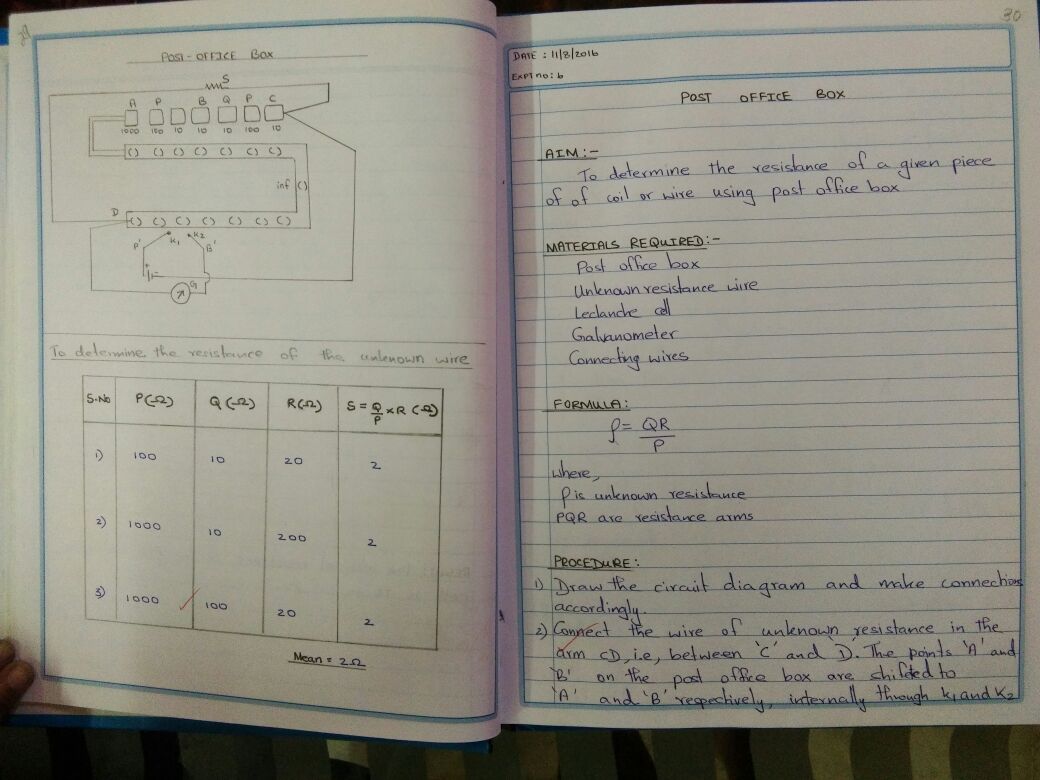 POST-OFFICE BOX
S
A P B Q P C
1000 100 10 10 10 100 10
inf
D
K1 K2
P' B'
G
To determine the resistance of the unknown wire
S.No P(Ω) Q(Ω) R(Ω) S = Q/P × R (Ω)
1) 100 10 20 2
2) 1000 10 200 2
3) 1000 100 20 2
Mean = 2Ω
30
DATE : 11/8/2016
EXPT NO : 6
POST OFFICE BOX
AIM:-
To determine the resistance of a given piece
of of coil or wire using post office box
MATERIALS REQUIRED:-
Post office box
Unknown resistance wire
Leclanche cell
Galvanometer
Connecting wires
FORMULA:
ρ = QR/P
where,
ρ is unknown resistance
PQR are resistance arms
PROCEDURE:
1) Draw the circuit diagram and make connections
accordingly.
2) Connect the wire of unknown resistance in the
arm CD, i.e, between 'C' and 'D'. The points 'A' and
'B' on the post office box are shifted to
'A' and 'B' respectively, internally through k1 and K2